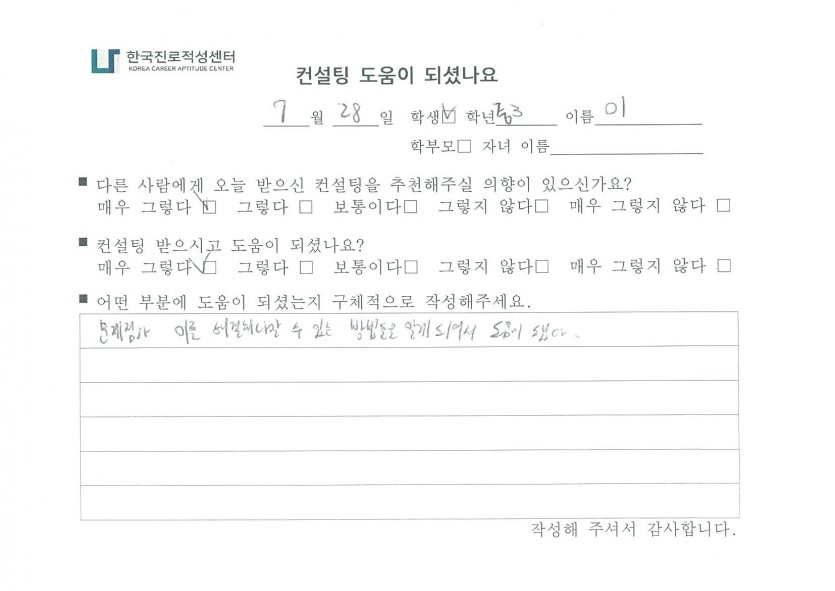 한국진로적성센터
KOREA CAREER APTITUDE CENTER
컨설팅 도움이 되셨나요
7 월 28 일 학생☑ 학년 중3 이름 이
학부모□ 자녀 이름
■ 다른 사람에게 오늘 받으신 컨설팅을 추천해주실 의향이 있으신가요?
매우 그렇다 ☑ 그렇다 □ 보통이다□ 그렇지 않다□ 매우 그렇지 않다 □
■ 컨설팅 받으시고 도움이 되셨나요?
매우 그렇다 ☑ 그렇다 □ 보통이다□ 그렇지 않다□ 매우 그렇지 않다 □
■ 어떤 부분에 도움이 되셨는지 구체적으로 작성해주세요.
문제점과 이를 해결해나갈 수 있는 방법들을 알게 되어서 도움이 됐다.
작성해 주셔서 감사합니다.